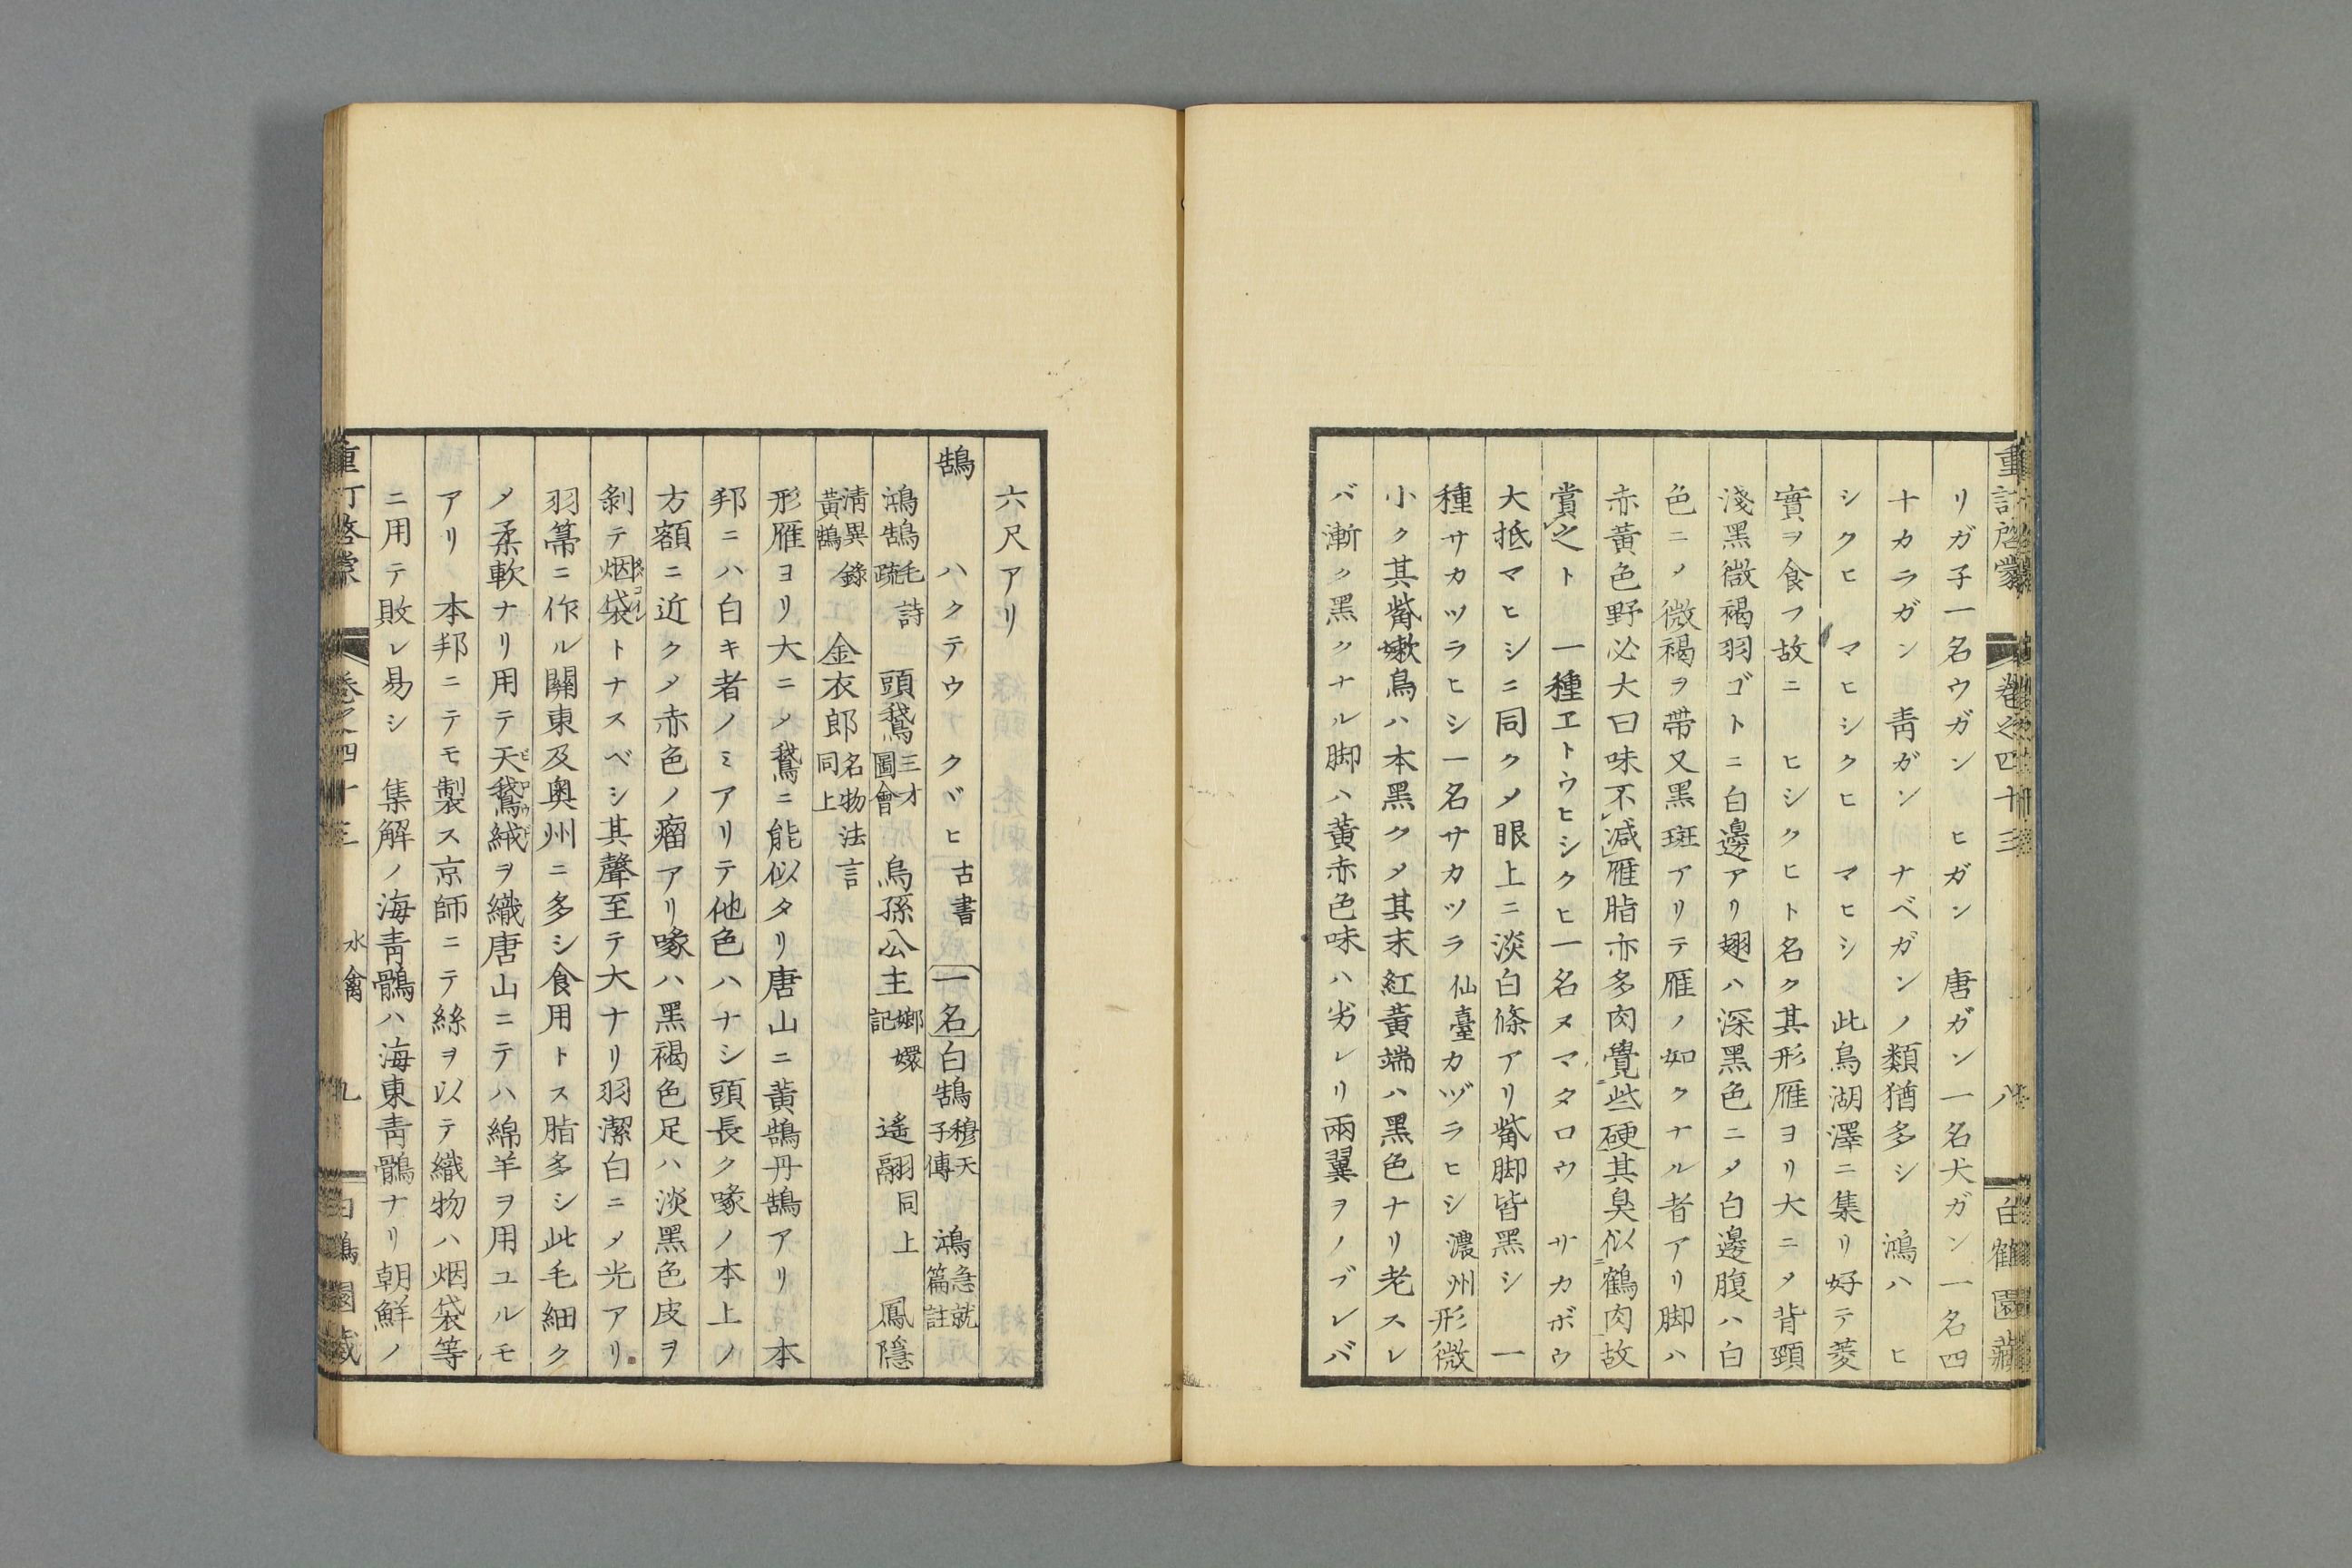 重訂啓蒙 卷之四十三 八 白鶴園藏
リガ子一名ウガン ヒガン 唐ガン一名犬ガン一名四
十カラガン 靑ガン ナベガンノ類猶多シ 鴻ハヒ
シクヒ マヒシクヒ マヒシ 此鳥湖澤ニ集リ好テ菱
實ヲ食フ故ニ ヒシクヒト名ク其形雁ヨリ大ニメ背頸
淺黑微褐羽ゴトニ白邊アリ翅ハ深黑色ニメ白邊腹ハ白
色ニメ微褐ヲ帶又黑斑アリテ雁ノ如クナル者アリ脚ハ
赤黃色野必大曰味不減雁脂亦多肉覺些硬其臭似鶴肉故
賞之ト 一種ヱトウヒシクヒ一名ヌマタロウ サカボウ
大抵マヒシニ同クメ眼上ニ淡白條アリ觜脚皆黑シ 一
種サカツラヒシ一名サカツラ仙臺カヅラヒシ濃州形微
小ク其觜嫩鳥ハ本黑クメ其末紅黃端ハ黑色ナリ老スレ
バ漸ク黑クナル脚ハ黃赤色味ハ劣レリ兩翼ヲノブレバ
六尺アリ
鵠 ハクテウ クヾヒ古書 一名白鵠穆天子傳 鴻急就篇註
鴻鵠毛詩疏 頭鵞三才圖會 烏孫公主嫏嬛記 遙翮同上 鳳隱
淸異錄 黃鵠 金衣郎名物法言同上
形雁ヨリ大ニメ鵞ニ能似タリ唐山ニ黃鵠丹鵠アリ 本
邦ニハ白キ者ノミアリテ他色ハナシ頭長ク喙ノ本上ノ
方額ニ近クメ赤色ノ瘤アリ喙ハ黑褐色足ハ淡黑色皮ヲ
剝テ烟袋トナスベシ其聲至テ大ナリ羽潔白ニメ光アリ
羽箒ニ作ル關東及奧州ニ多シ食用トス脂多シ此毛細ク
メ柔軟ナリ用テ天鵞絨ヲ織唐山ニテハ綿羊ヲ用ユルモ
アリ 本邦ニテモ製ス京師ニテ絲ヲ以テ織物ハ烟袋等
ニ用テ敗レ易シ 集解ノ海靑鶻ハ海東靑鶻ナリ朝鮮ノ
重訂啓蒙 卷之四十三 水禽 九 白鶴園藏